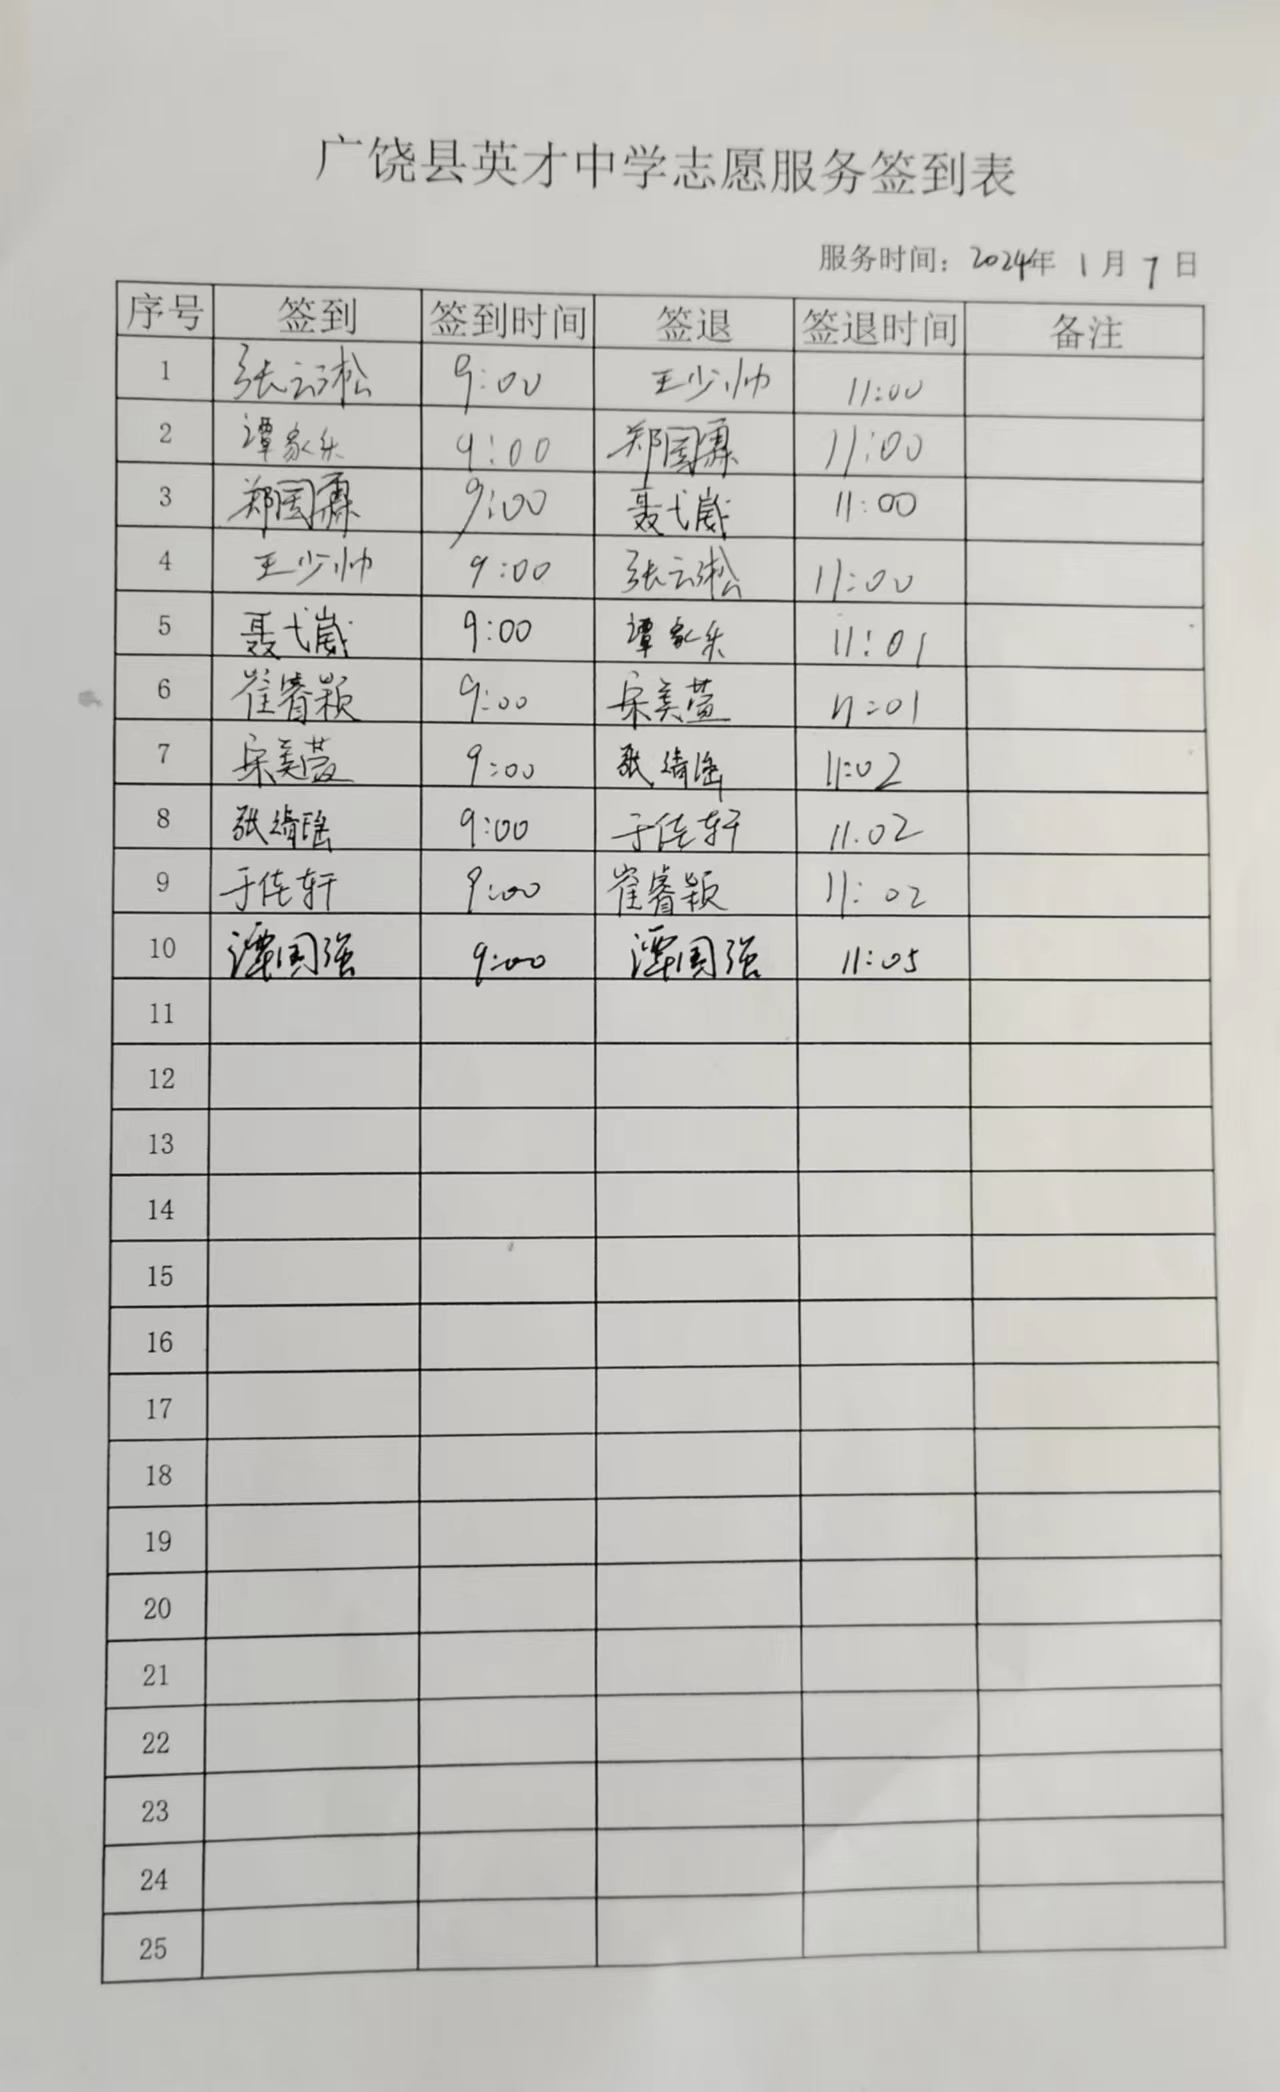 广饶县英才中学志愿服务签到表
服务时间：2024年 1月 7日
序号 签到 签到时间 签退 签退时间 备注
1 张云淞 9:00 王少帅 11:00
2 谭家乐 9:00 郑国霖 11:00
3 郑国霖 9:00 聂弋崴 11:00
4 王少帅 9:00 张云淞 11:00
5 聂弋崴 9:00 谭家乐 11:01
6 崔睿颖 9:00 宋美萱 11:01
7 宋美萱 9:00 张婧瑶 11:02
8 张婧瑶 9:00 于佳轩 11.02
9 于佳轩 9:00 崔睿颖 11:02
10 谭国强 9:00 谭国强 11:05
11
12
13
14
15
16
17
18
19
20
21
22
23
24
25